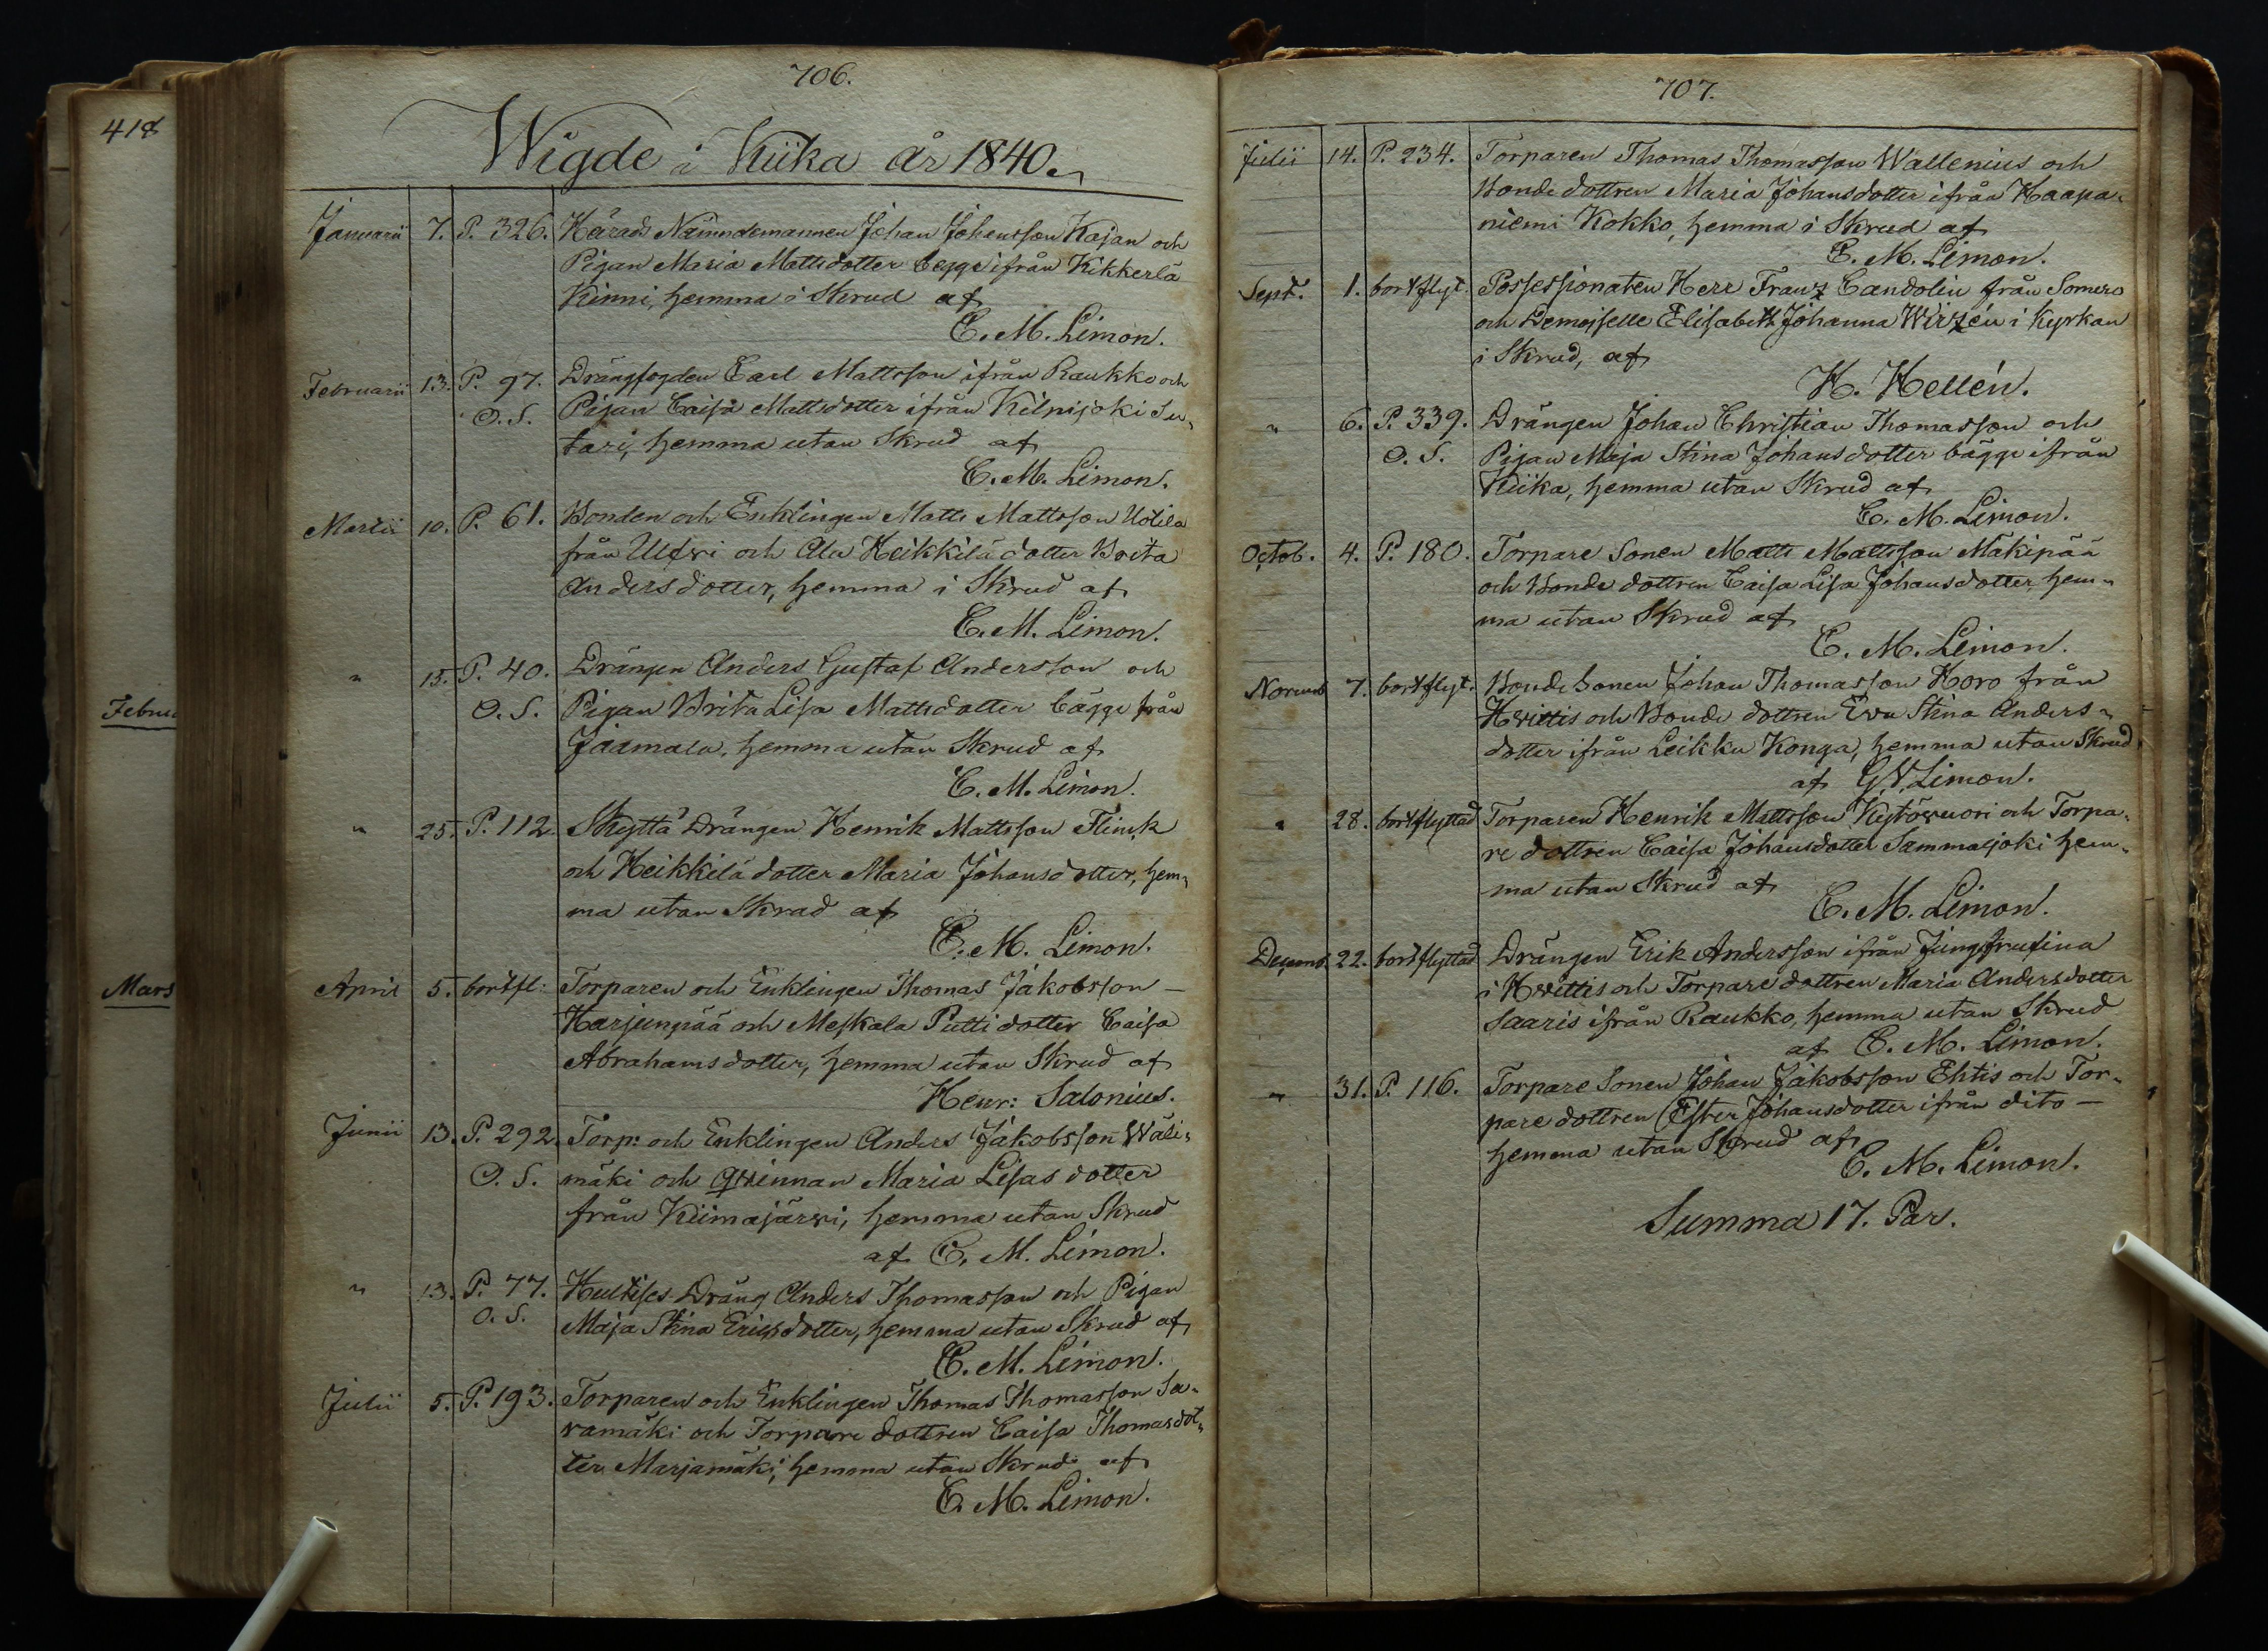 418
Febru
Mars
706.
Wigde i Kiika år 1840.
Januarii 7. P. 326. Härads Nämndemannen Johan Johansson Kajan och
Pigan Maria Mattsdotter begge ifrån Kikkerlä
Kinni, hemma i Skrud af
C. M. Limon.
Februarii 13. P. 97. Drängfogden Carl Mattsson ifrån Raukko och
O. S. Pigan Caisa Mattsdotter ifrån Kilpijoki Su-
tari, hemma utan Skrud af
C. M. Limon.
Martii 10. P. 61. Bonden och Enklingen Matts Mattsson Uotila
från Ulfvi och Ala Heikkilä dotter Brita
Andersdotter, hemma i Skrud af
C. M. Limon.
" 15. P. 40. Drängen Anders Gustaf Andersson och
O. S. Pigan Brita Lisa Mattsdotter bägge från
Jaamala, hemma utan Skrud af
C. M. Limon.
" 25. P. 112. Skyttä Drängen Henrik Mattsson Flinck
och Heikkilä dotter Maria Johansdotter, hem-
ma utan Skrud af
C. M. Limon.
April 5. bortfl: Torparen och Enklingen Thomas Jakobsson –
Harjunpää och Meskala Putti dotter Caisa
Abrahamsdotter, hemma utan Skrud af
Henr: Salonius.
Junii 13. P. 292. Torp: och Enklingen Anders Jakobsson Wäli-
O. S. mäki och Qvinnan Maria Lisas dotter
från Kiimajärvi, hemma utan Skrud
af C. M. Limon.
" 13. P. 77. Hultises Dräng Anders Thomasson och Pigan
O. S. Maja Stina Ericsdotter, hemma utan Skrud af
C. M. Limon.
Julii 5. P. 193. Torparen och Enklingen Thomas Thomasson Sa-
vamäki och Torpare dottren Caisa Thomasdot-
ter Marjamäki, hemma utan Skrud af
C. M. Limon.
707.
Julii 14. P. 234. Torparen Thomas Thomasson Wallenius och
Bonde dottren Maria Johansdotter ifrån Haapa-
niemi Kokko, hemma i Skrud af
C. M. Limon.
Sept. 1. bortflyt. Possessionaten Herr Franz Candolin från Somero
och Demoiselle Elisabeth Johanna Wirzén i Kyrkan
i Skrud, af
H. Hellén.
" 6. P. 339. Drängen Johan Christian Thomasson och
O. S. Pigan Maja Stina Johansdotter bägge ifrån
Kiika, hemma utan Skrud af
C. M. Limon.
Octob. 4. P. 180. Torpare Sonen Matts Mattsson Mäkipää
och Bonde dottren Caisa Lisa Johansdotter, hem-
ma utan Skrud af
C. M. Limon.
Novemb 7. bortflyt. Bonde Sonen Johan Thomasson Koro från
Hvittis och Bonde dottren Eva Stina Anders-
dotter ifrån Leikku Konga, hemma utan Skrud
af G. N. Limon.
" 28. bortflyttad Torparen Henrik Mattsson Kytövuori och Torpa-
re dottren Caisa Johansdotter Sammaljoki hem-
ma utan Skrud af
C. M. Limon.
Decemb 22. bortflyttad Drängen Erik Andersson ifrån
i Hvittis och Torpare dottren Maria Andersdotter
Saaris ifrån Raukko, hemma utan Skrud
af C. M. Limon.
" 31. P. 116. Torpare Sonen Johan Jakobsson Ehtis och Tor-
pare dottren Ester Johansdotter ifrån dito –
hemma utan Skrud af
C. M. Limon.
Summa 17. Par.